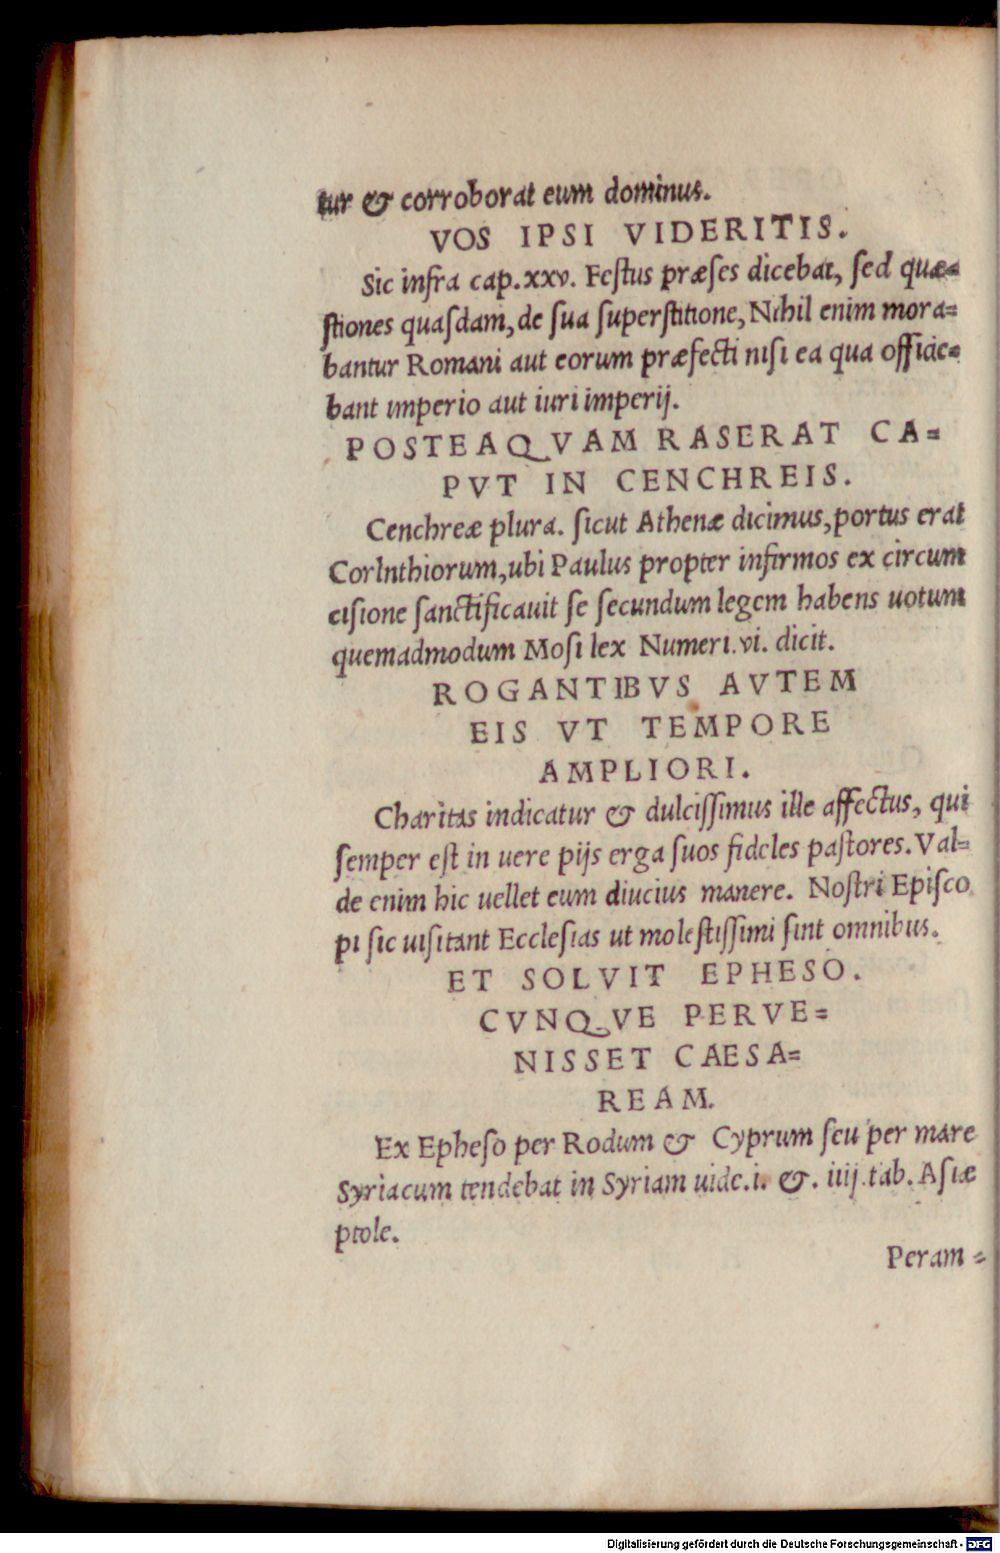 tur & corroborat eum dominus.
VOS IPSI VIDERITIS.
Sic infra cap. xxv. Festus præses dicebat, sed quæ=
stiones quasdam, de sua superstitione, Nihil enim mora=
bantur Romani aut eorum præfecti nisi ea qua officie=
bant imperio aut iuri imperij.
POSTEAQVAM RASERAT CA=
PVT IN CENCHREIS.
Cenchreæ plura. sicut Athenæ dicimus, portus erat
CorInthiorum, ubi Paulus propter infirmos ex circum
cisione sanctificauit se secundum legem habens uotum
quemadmodum Mosi lex Numeri. vi. dicit.
ROGANTIBVS AVTEM
EIS VT TEMPORE
AMPLIORI.
Charitas indicatur & dulcissimus ille affectus, qui
semper est in uere pijs erga suos fideles pastores. Val=
de enim hic uellet eum diucius manere. Nostri Episco
pi sic uisitant Ecclesias ut molestissimi sint omnibus.
ET SOLVIT EPHESO.
CVNQVE PERVE=
NISSET CAESA=
REAM.
Ex Epheso per Rodum & Cyprum seu per mare
Syriacum tendebat in Syriam uide. i. &. iiij. tab. Asiæ
ptole.
Peram=
Digitalisierung gefördert durch die Deutsche Forschungsgemeinschaft - DFG